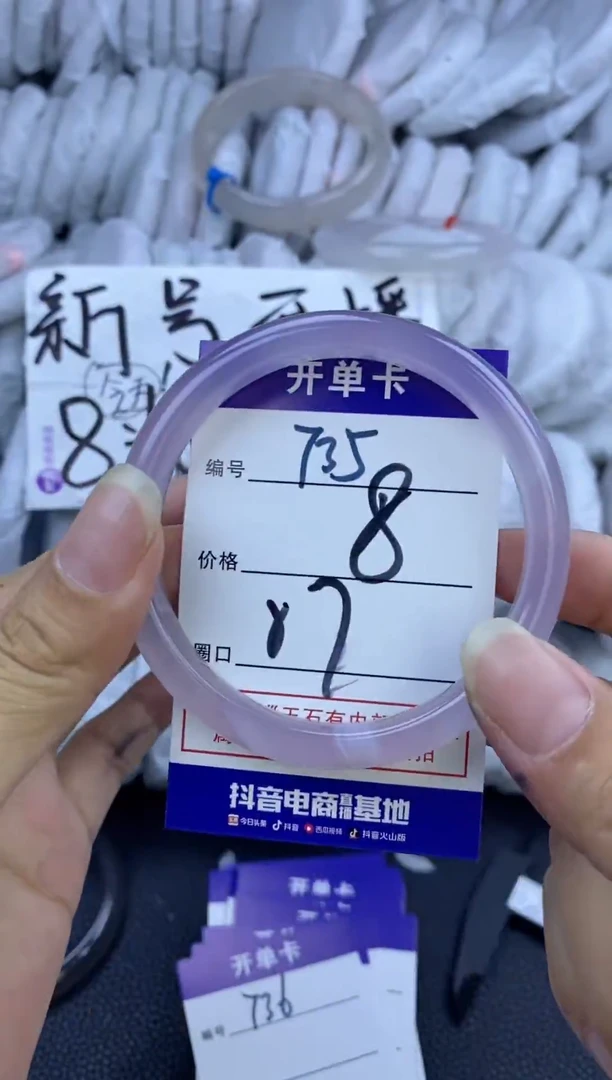 新号开播
8
开单卡
编号 735
价格 8
圈口 57
玉石有内
抖音电商直播基地
今日头条 抖音 西瓜视频 抖音火山版
开单卡
开单卡
编号 736